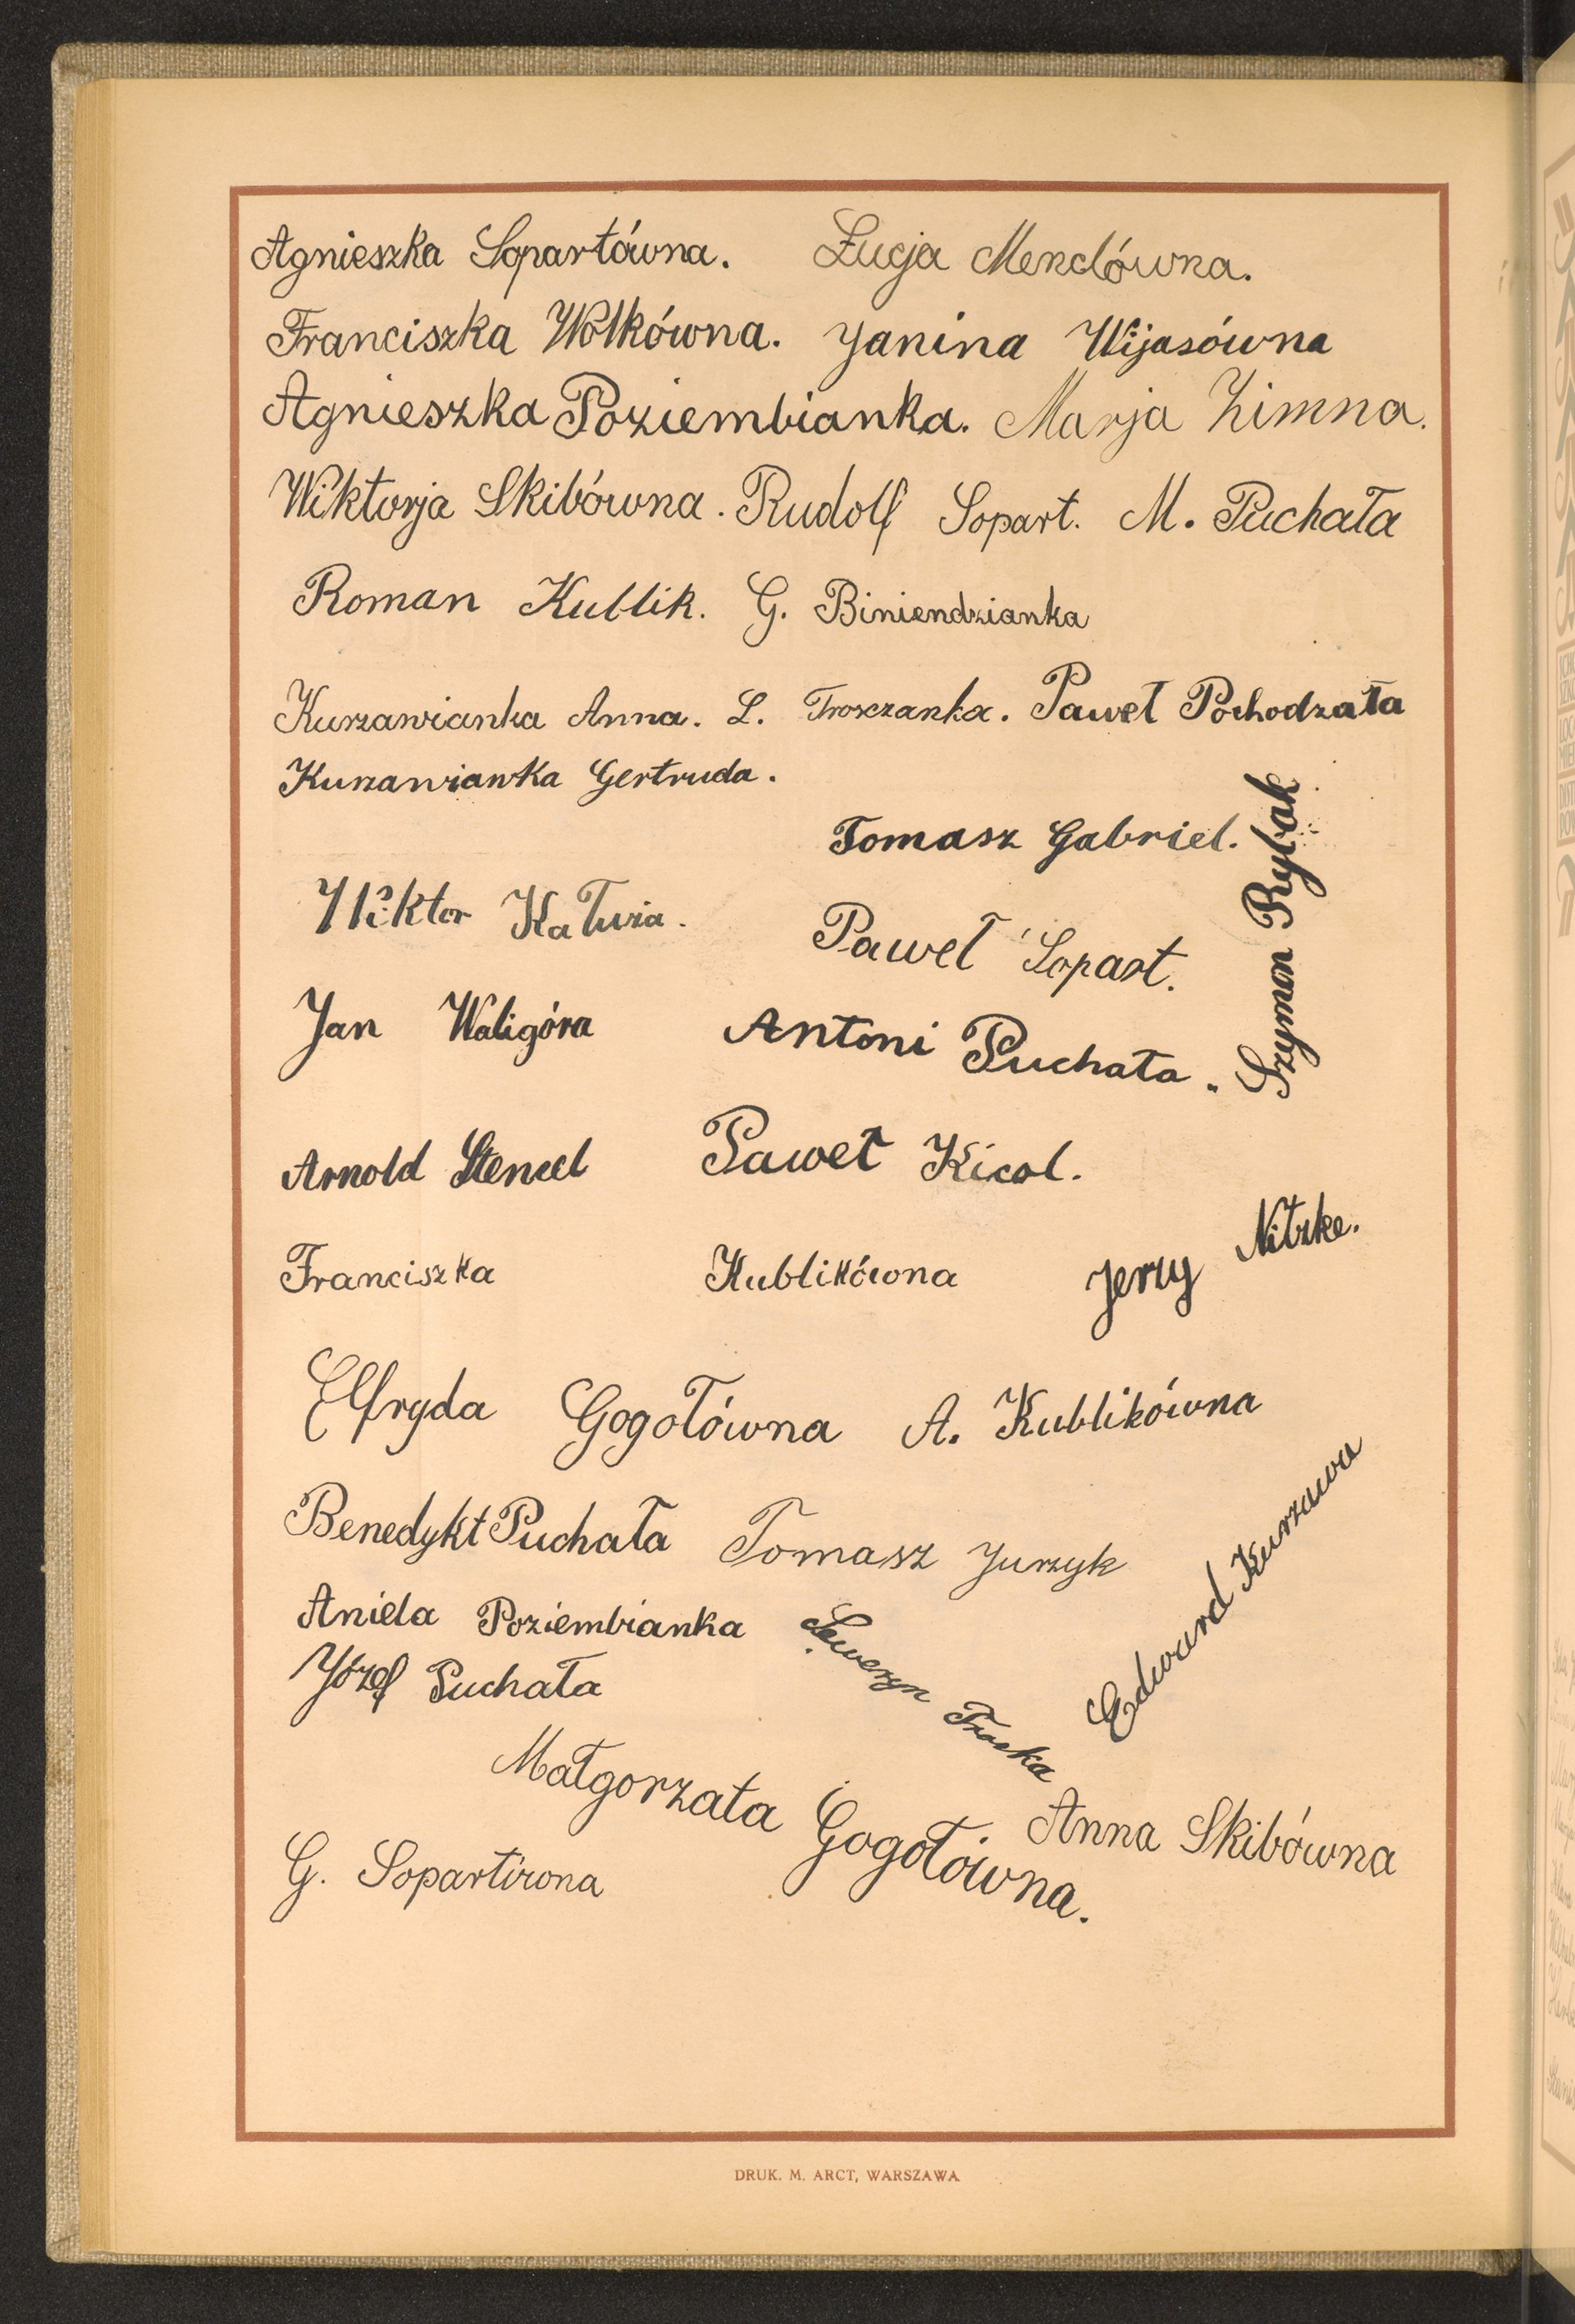 Agnieszka Sopartówna. Łucja Mendówna.
Franciszka Wolkówna. Janina Wijasówna
Agnieszka Poziembianka. Marja Zimna.
Wiktorja Skibówna. Rudolf Sopart. M. Puchała
Roman Kublik. G. Biniendzianka
Kurzawianka Anna. L. Troszczanka. Paweł Pochodzała
Kurzawianka Gertruda.
Tomasz Gabriel.
Szymon Rybak
Wiktor Kałuża.
Paweł Sopart.
Jan Waligóra Antoni Puchała.
Arnold Stencel Paweł Kicol.
Franciszka Kublikówna Jerzy Nitzke.
Elfryda Gogołówna A. Kublikówna
Benedykt Puchała Tomasz Jurzyk
Edward Kurzawa
Aniela Poziembianka Seweryn Troska
Józef Puchała
Małgorzata Gogołówna.
Anna Skibówna
G. Sopartówna
DRUK. M. ARCT, WARSZAWA